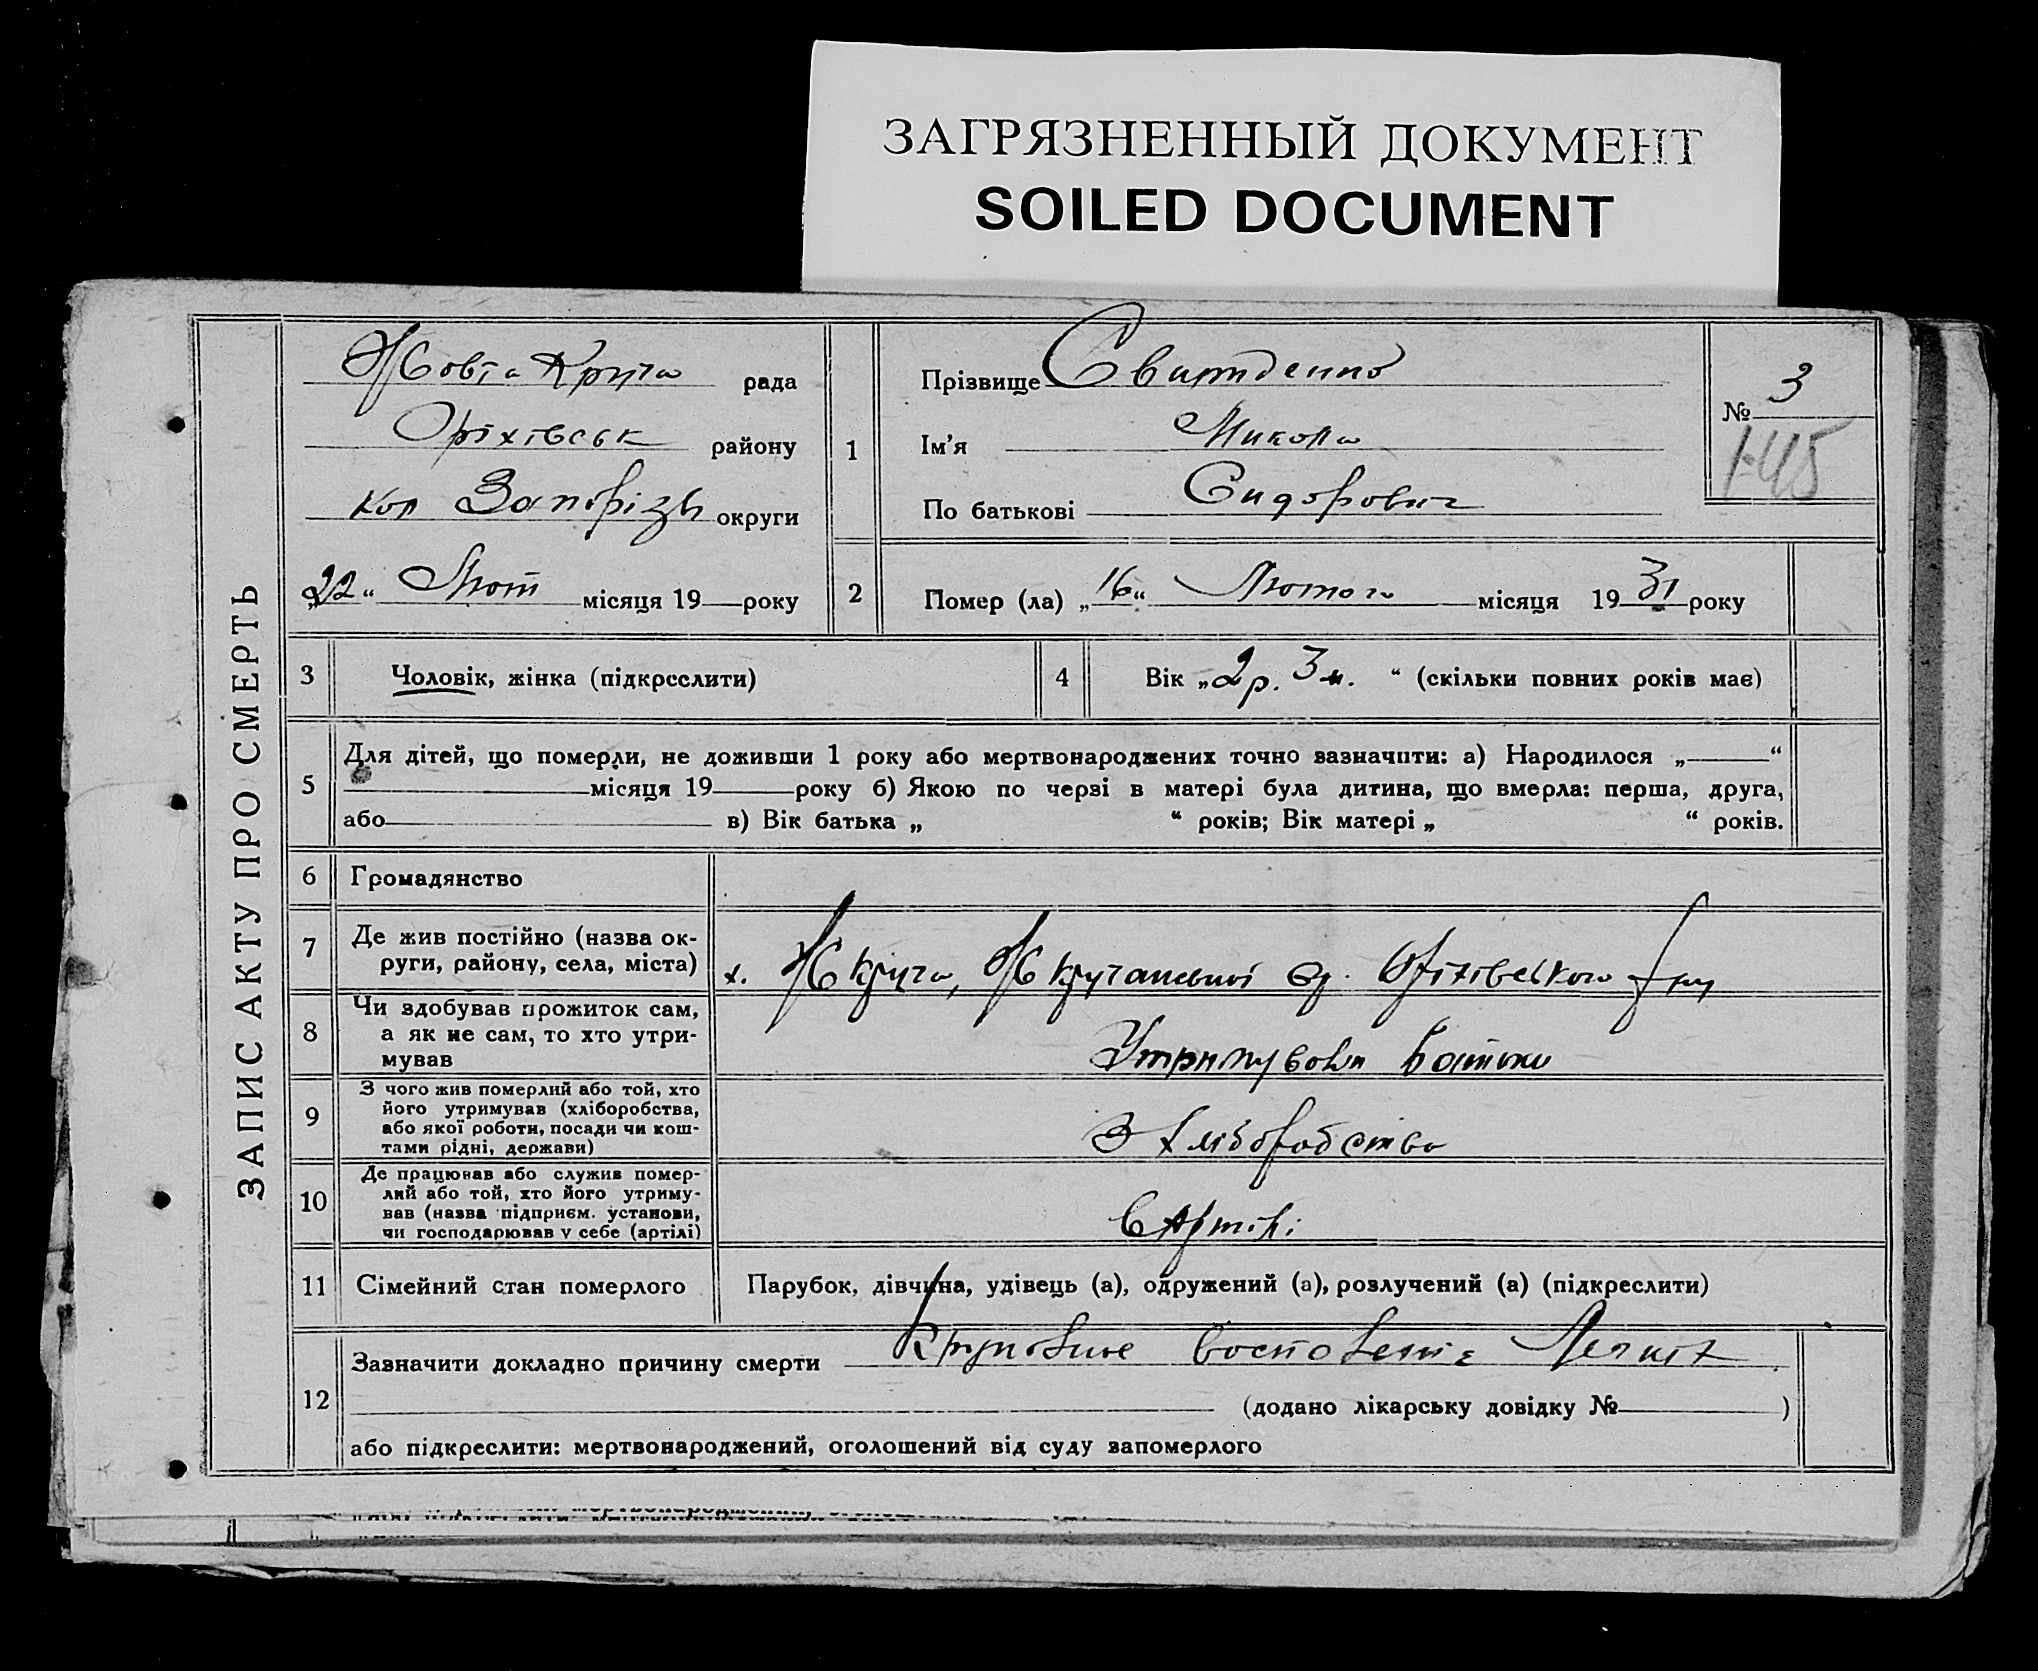 ЗАГРЯЗНЕННЫЙ ДОКУМЕНТ
SOILED DOCUMENT
ЗАПИС АКТУ ПРО СМЕРТЬ
Жовта Круча рада
Оріхівськ району
кол Запорізьк округи
„22“ Лют місяця 19 року
1
Прізвище
Ім’я Микола
По батькові Сидорович
№ 3
1-45
2 Помер (ла) „16“ Лютого місяця 1931 року
3 Чоловік, жінка (підкреслити)
4 Вік „2 р. 3 м. “ (скільки повних років має)
5 Для дітей, що померли, не доживши 1 року або мертвонароджених точно зазначити: а) Народилося „ “
місяця 19 року б) Якою по черзі в матері була дитина, що вмерла: перша, друга,
або в) Вік батька „ “ років; Вік матері „ “ років.
6 Громадянство
7 Де жив постійно (назва ок-
руги, району, села, міста) х. Ж Круча, Ж Кручанської с/р. Оріхівського р-ну
8 Чи здобував прожиток сам,
а як не сам, то хто утри-
мував
Утримували батьки
9 З чого жив померлий або той, хто
його утримував (хліборобства,
або якої роботи, посади чи кош-
тами рідні, держави)
З хліборобства
10 Де працював або служив помер-
лий або той, хто його утриму-
вав (назва підприєм. установи,
чи господарював у себе (артілі)
в Артілі
11 Сімейний стан померлого Парубок, дівчина, удівець (а), одружений (а), розлучений (а) (підкреслити)
12 Зазначити докладно причину смерти Крупозне воспаление Легких
(додано лікарську довідку № )
або підкреслити: мертвонароджений, оголошений від суду запомерлого